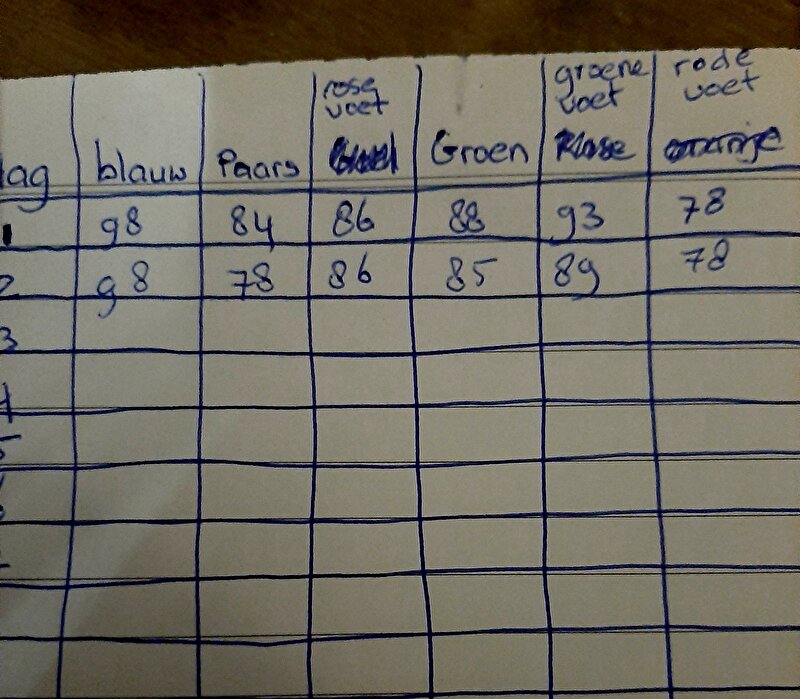 rose groene rode
voet voet voet
lag blauw Paars Groen oranje
1 98 84 86 88 93 78
2 98 78 86 85 89 78
3
4
5